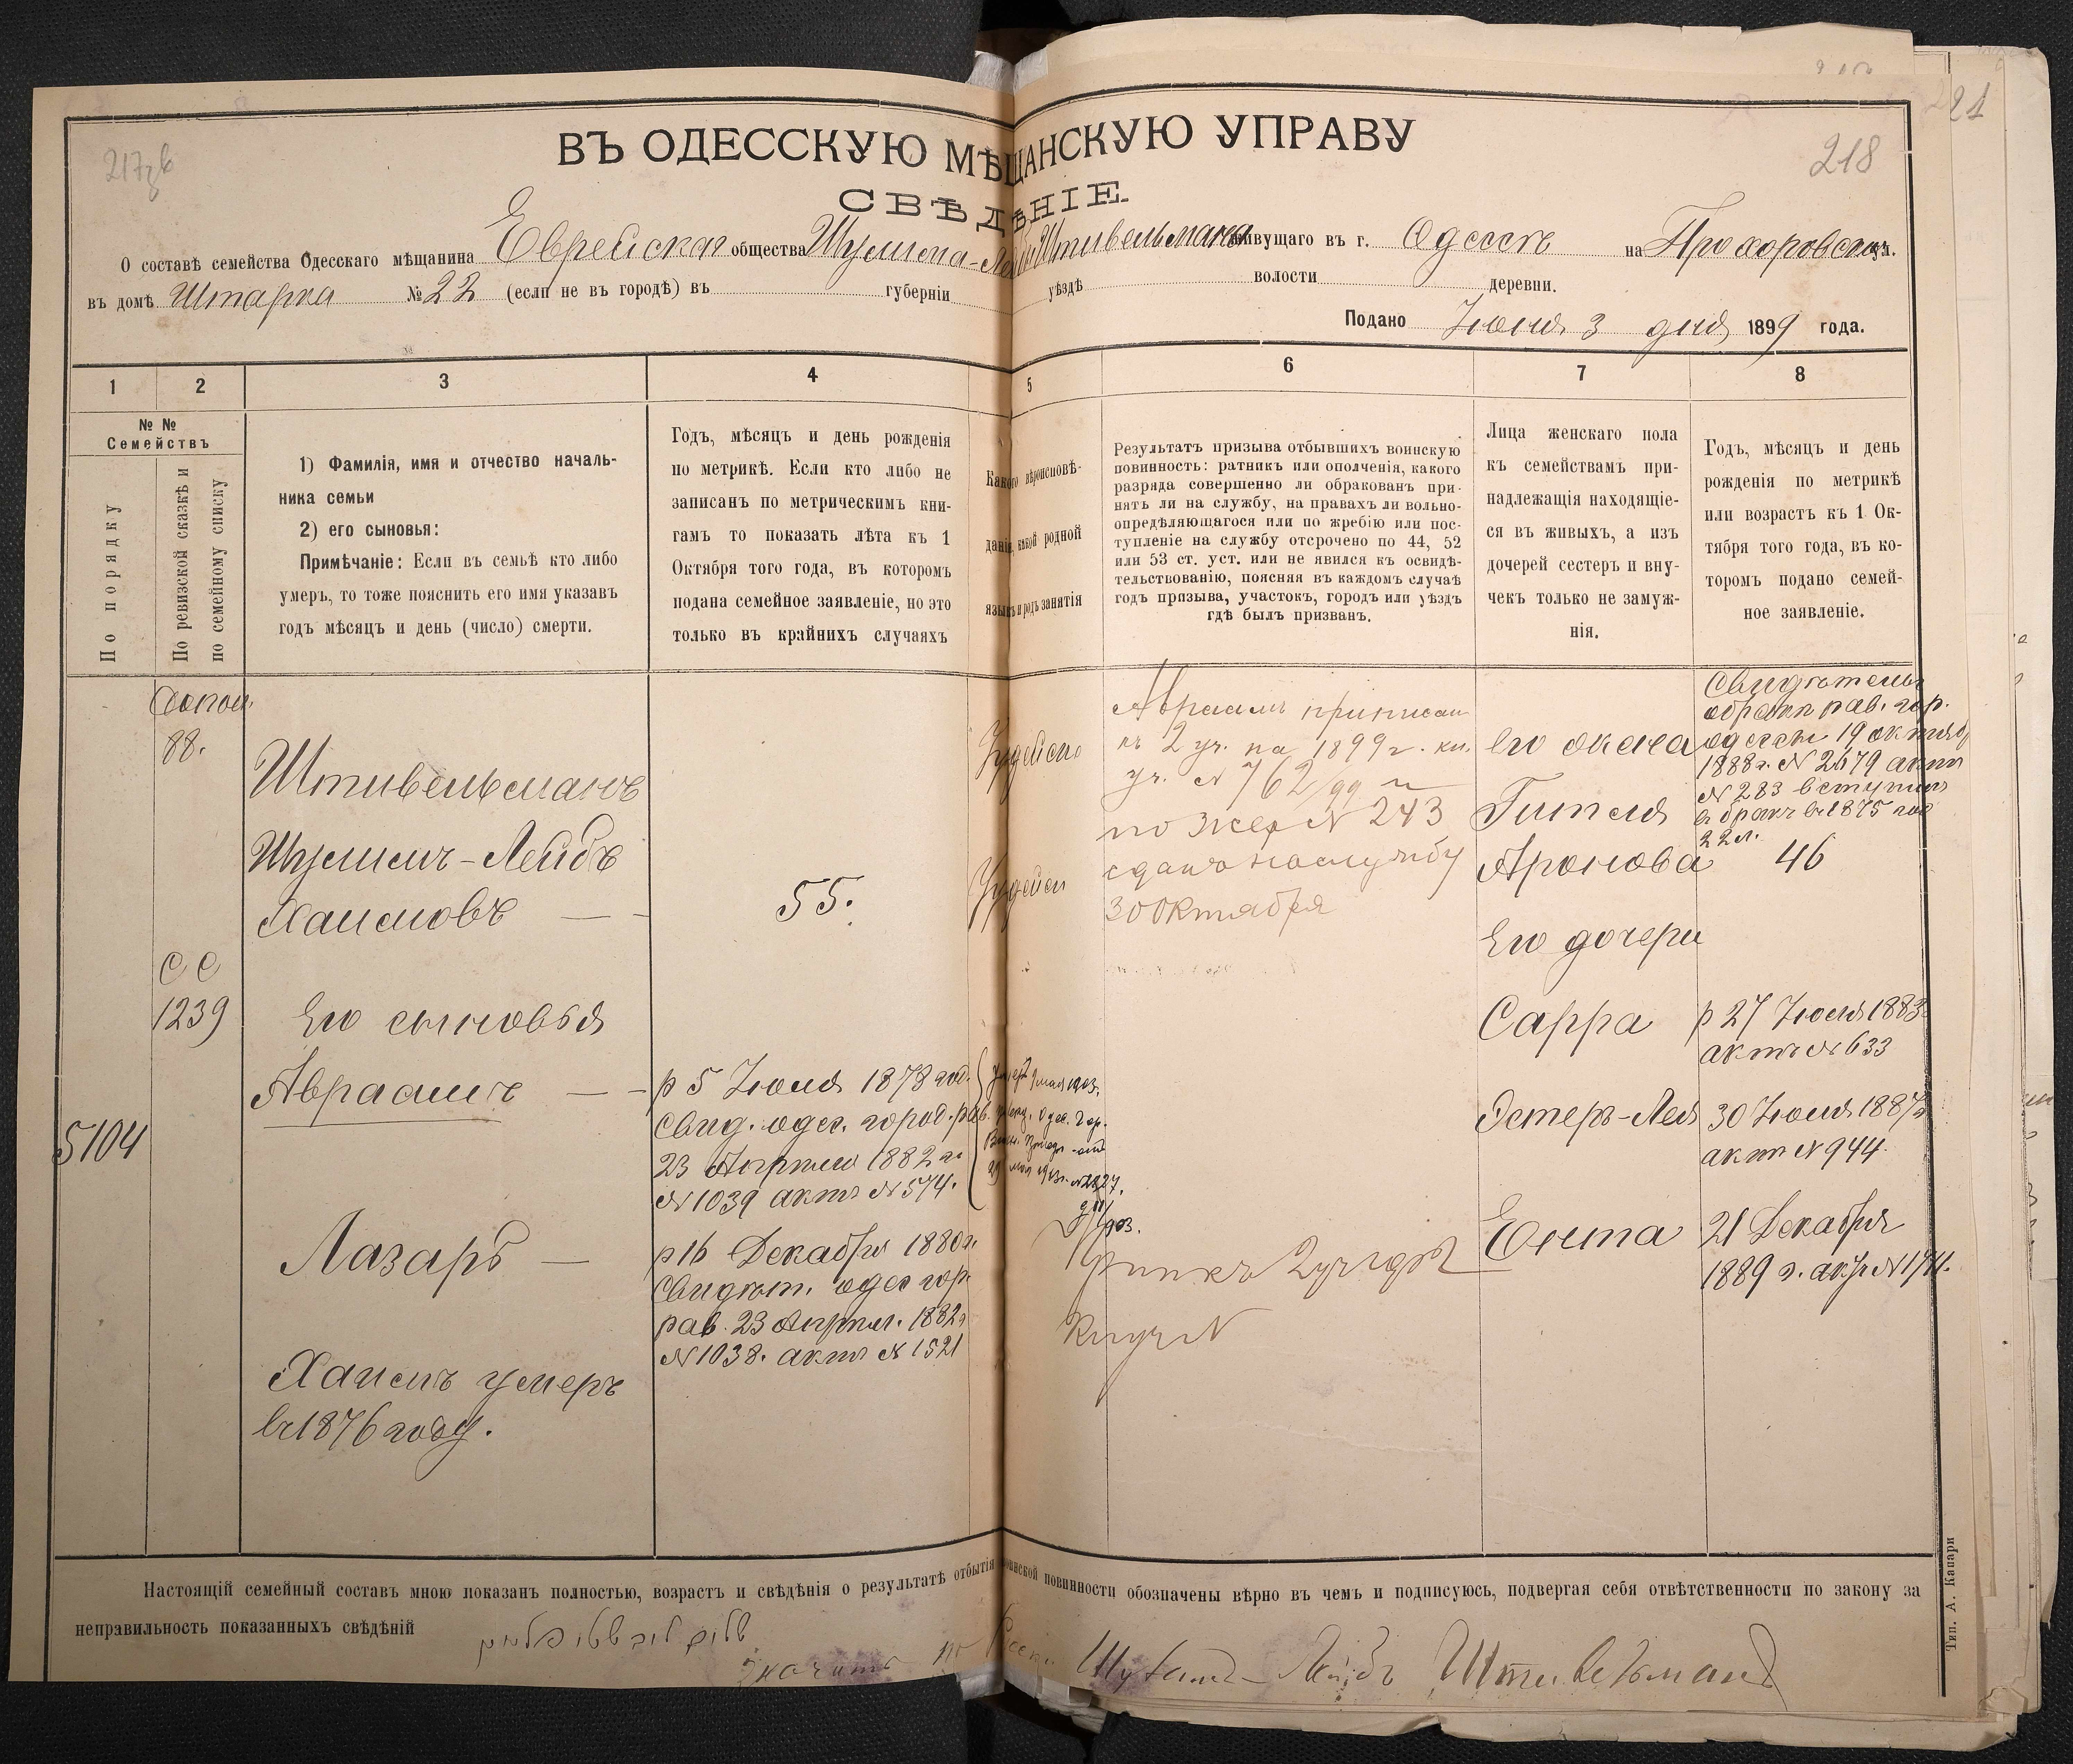 217зв
218
21
ВЪ ОДЕССКУЮ МѢЩАНСКУЮ УПРАВУ
СВѢДѢНІЕ.
О составѣ семейства Одесскаго мѣщанина Еврейская общества Шулима-Лейб Штивельмана живущаго въ г. Одессѣ на Прохоровской ул.
въ домѣ Штарка № 22 (если не въ городѣ) въ губерніи уѣздѣ волости деревни.
Подано Іюня 3 дня 1899 года.
1 2 3 4 5 6 7 8
№ №
Семействъ
По порядку
По ревизской сказкѣ и
по семейному списку
1) Фамилія, имя и отчество началь-
ника семьи
2) его сыновья:
Примѣчаніе: Если въ семьѣ кто либо
умеръ, то тоже пояснить его имя указавъ
годъ мѣсяцъ и день (число) смерти.
Годъ, мѣсяцъ и день рожденія
по метрикѣ. Если кто либо не
записанъ по метрическимъ кни-
гамъ то показать лѣта къ 1
Октября того года, въ которомъ
подана семейное заявленіе, но это
только въ крайнихъ случаяхъ
Какого вѣроисповѣ-
данія, какой родной
языкъ и родъ занятія
Результатъ призыва отбывшихъ воинскую
повинность: ратникъ или ополченія, какого
разряда совершенно ли обракованъ при-
нятъ ли на службу, на правахъ ли вольно-
опредѣляющагося или по жребію или пос-
тупленіе на службу отсрочено по 44, 52
или 53 ст. уст. или не явился къ освидѣ-
тельствованію, поясняя въ каждомъ случаѣ
годъ призыва, участокъ, городъ или уѣздъ
гдѣ былъ призванъ.
Лица женскаго пола
къ семействамъ при-
надлежащія находящіе-
ся въ живыхъ, а изъ
дочерей сестеръ и вну-
чекъ только не замуж-
нія.
Годъ, мѣсяцъ и день
рожденія по метрикѣ
или возрастъ къ 1 Ок-
тября того года, въ ко-
торомъ подано семей-
ное заявленіе.
Допол
88.
СС
1239
5104
Штивельманъ
Шулимъ-Лейбъ
Хаимовъ
Его сыновья
Авраамъ
Лазарь
Хаимъ умеръ
въ 1876 году.
55.
р 5 Іюля 1878 год.
Свид. одес. город. рав.
23 Апрѣля 1882 г.
№ 1039 актъ № 574.
р 16 Декабря 1880 г.
Свидѣт. одес гор.
рав. 23 Апрѣл. 1882 г
№ 1038. актъ № 1521
Іудейско
Іудейск
Авраамъ приписан
къ 2 уч. на 1899 г. кн.
уч. № 762/99
по жер № 243
сданъ на службу
30 Октября
2 уч.
Кн уч №
его жена
Гитля
Аронова
Его дочери
Сарра
Эстеръ-Лея
Ента
Свидѣтель
о бракѣ рав. гор.
одессы 19 октяб
1888 г. № 2679 актъ
№ 283 вступилъ
въ бракъ въ 1875 год
22 л.
46
р 27 Іюля 1883
актъ № 633
30 Іюля 1887 г
актъ № 944.
21 Декабря
1889 г. актъ № 1711.
Настоящій семейный составъ мною показанъ полностью, возрастъ и свѣдѣнія о результатѣ отбытія воинской повинности обозначены вѣрно въ чемъ и подписуюсь, подвергая себя отвѣтственности по закону за
неправильность показанныхъ свѣдѣній
значитъ по Шулимъ-Лейбъ Штивельманъ
Тип. А. Капари